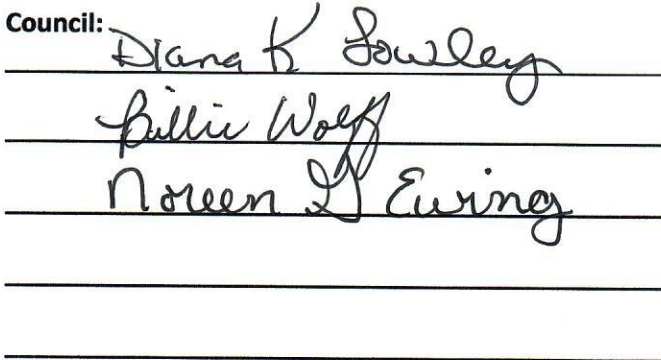 Council: Diana K Sowley
Billie Wolff
Noreen G Ewing